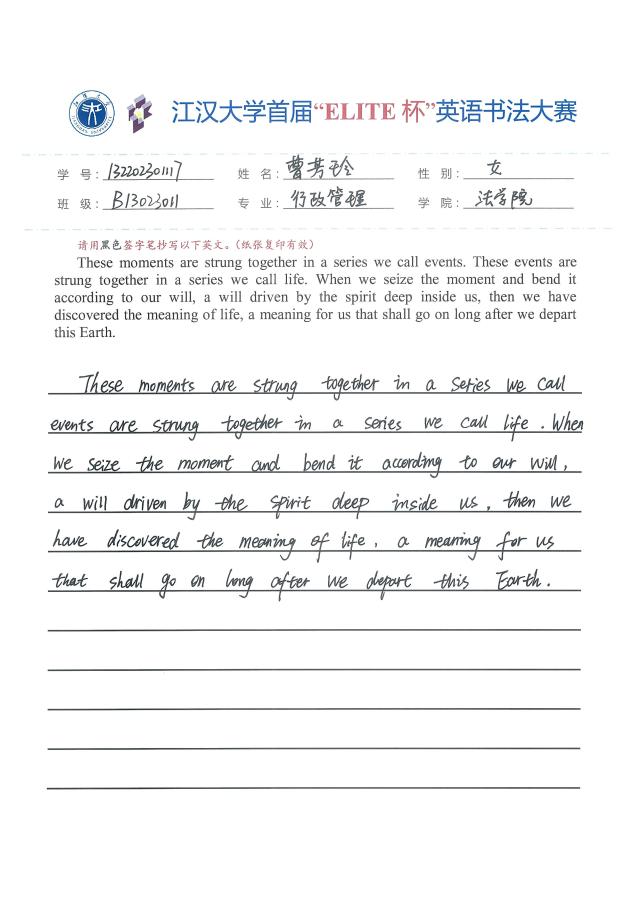 江汉大学首届“ELITE 杯”英语书法大赛
学 号：132202301117 姓 名：曹芳玲 性 别：女
班 级：B13023011 专 业：行政管理 学 院：法学院
请用黑色签字笔抄写以下英文。（纸张复印有效）
These moments are strung together in a series we call events. These events are
strung together in a series we call life. When we seize the moment and bend it
according to our will, a will driven by the spirit deep inside us, then we have
discovered the meaning of life, a meaning for us that shall go on long after we depart
this Earth.
These moments are strung together in a series we call
events are strung together in a series we call life. When
we seize the moment and bend it according to our will,
a will driven by the spirit deep inside us, then we
have discovered the meaning of life, a meaning for us
that shall go on long after we depart this Earth.